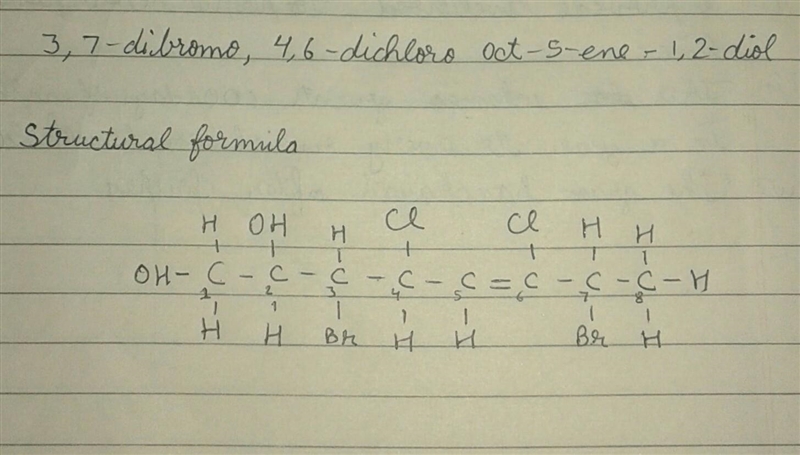 3, 7-dibromo, 4,6-dichloro Oct-5-ene-1,2-diol
Structural formula
H OH H Cl Cl H H
OH-C-C-C-C-C=C-C-C-H
1 2 3 4 5 6 7 8
H H Br H H Br H